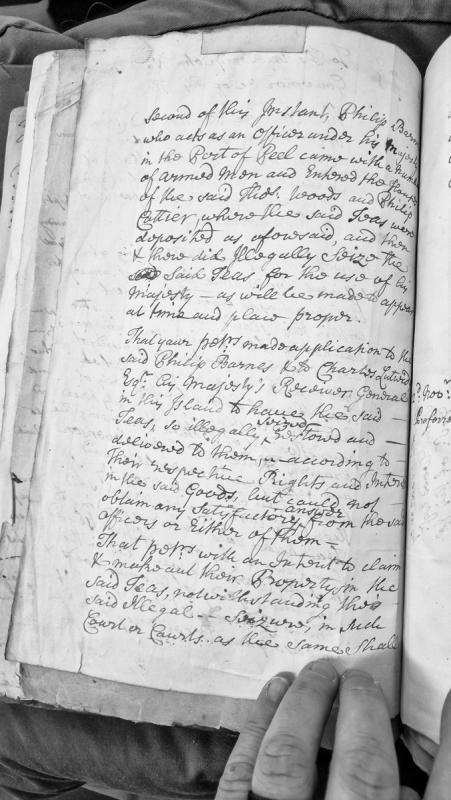 Second of this Instant, Philip Barnes
who acts as an officer under his Majesty
in the Port of Peel came with a number
of armed Men and Entered the
of the said Thos. Woods and Philip
Cattier, where the said Teas were
deposited as aforesaid, and then
& there did Illegally Seize the
said Teas, for the use of his
Majesty — as will be made to appear
at time and place proper.
That your petrs. made application to the
said Philip Barnes & to Charles Lutwidge
Esqr. his Majesty's Receiver General
in this Island to have the said —
Teas, so illegally Seized Restored and —
delivered to them, — according to —
Their respective Rights and Interest
in the said Goods, but could not
obtain any Satisfactory answer from the said
officers or Either of them —
That petrs. with an Intent to claim
& make out their Property in the
said Teas, notwithstanding the
said Illegal — Seizure, in such
Court or Courts. as the same shall